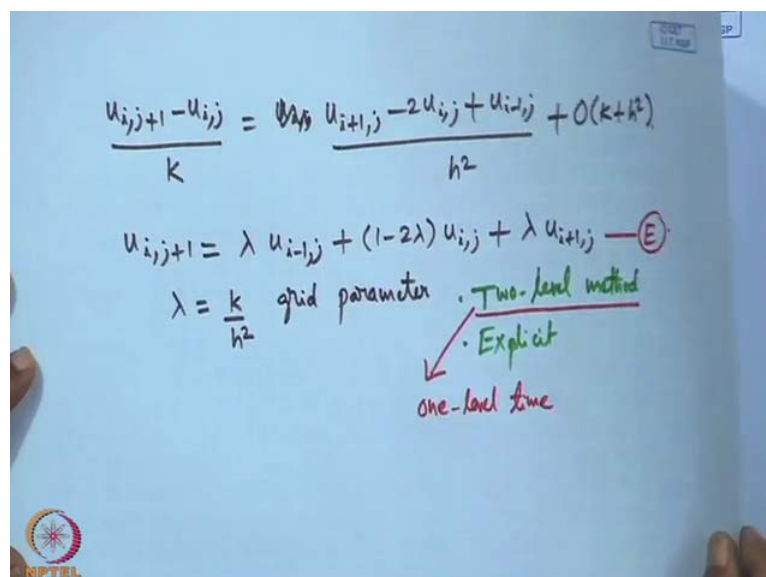 GP
u_{i,j+1} - u_{i,j} / k = u_{i+1,j} - 2u_{i,j} + u_{i-1,j} / h² + O(k+h²)
u_{i,j+1} = λ u_{i-1,j} + (1-2λ) u_{i,j} + λ u_{i+1,j} — Ⓔ
λ = k/h² grid parameter . Two-level method
. Explicit
one-level time
NPTEL